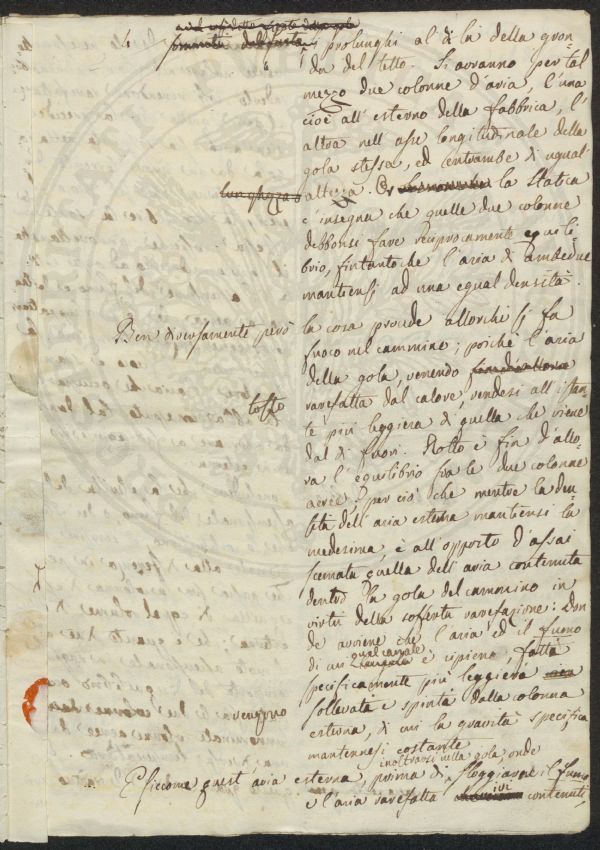 4. si prolunghi al di là della gron-
da del tetto. Si avranno per tal
mezzo due colonne d'aria, l'una
cioè all'esterno della fabbrica, l'
altra nell'asse longitudinale della
gola stessa, ed entrambe di ugual
lunghezza altezza. la Statica
c'insegna che quelle due colonne
debbonsi fare reciprocamente equili-
brio, fintantochè l'aria di ambedue
mantiensi ad una egual densità.
Ben diversamente però la cosa procede allorchè si fa
fuoco nel cammine; poichè l'aria
della gola, venendo
tosto rarefatta dal calore, rendesi all'istan-
te più leggiera di quella che viene
dal di fuori. Rotto è fin d'allo-
ra l'equilibrio fra le due colonne
aeree, per ciò che mentre la den-
sità dell'aria esterna mantiensi la
medesima, è all'opposto d'assai
scemata quella dell'aria contenuta
dentro la gola del cammino in
virtù della sofferta rarefazione: Don-
de avviene che l'aria ed il fumo
di cui qual canale è ripieno, fatta
specificamente più leggiera
vengono sollevata e spinta dalla colonna
esterna, di cui la gravità specifica
mantennesi costante.
E siccome quest'aria esterna, prima di inoltrarsi nella gola, onde sloggiarne il fumo
e l'aria rarefatta ivi contenuti,